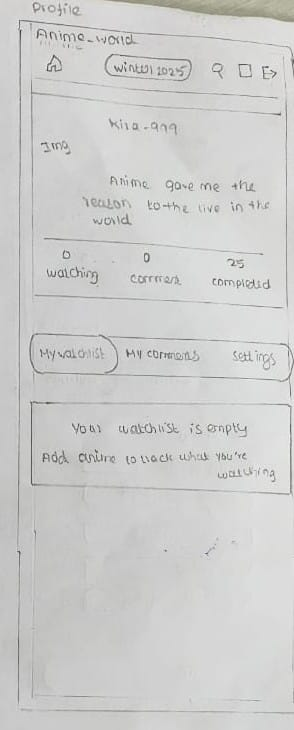 Profile
Anime_world
winter 2025
Kira-999
Img
Anime gave me the
reason to the live in the
world
0 0 25
watching comment completed
My watchlist My comments Settings
Your watchlist is empty
Add anime to track what you're
watching